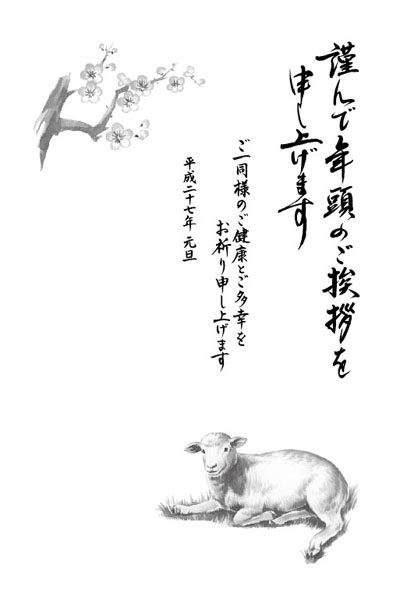 謹んで年頭のご挨拶を
申し上げます
ご一同様のご健康とご多幸を
お祈り申し上げます
平成二十七年 元旦